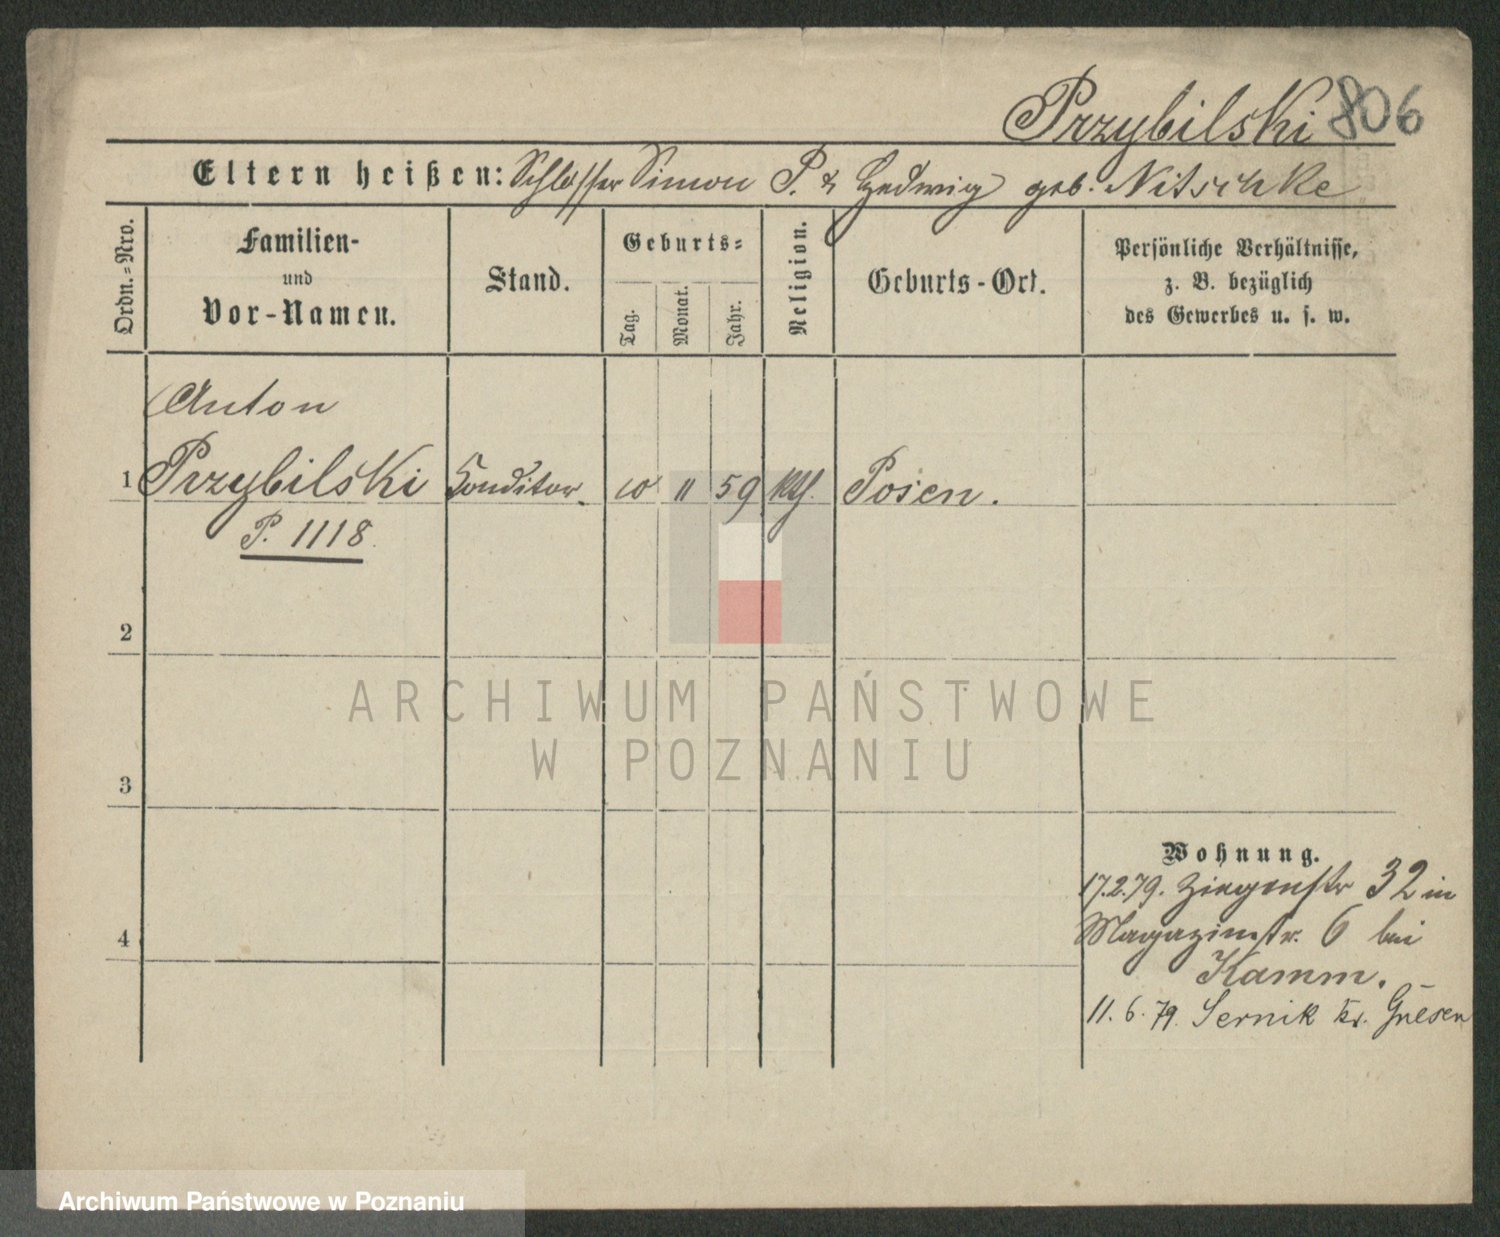 Przybilski 806
Eltern heißen: Schlosser Simon P. & Hedwig geb. Nitschke
Ordn.-Nro.
Familien-
und
Vor-Namen.
Stand.
Geburts-
Tag.
Monat.
Jahr.
Religion.
Geburts-Ort.
Persönliche Verhältnisse,
z. B. bezüglich
des Gewerbes u. s. w.
Anton
1 Przybilski Conditor. 10 11 59 kth. Posen.
P. 1118
2
3
4
Wohnung.
17.2.79. Ziegenstr 32 in
Magazinstr. 6 bei
Kamm.
11.6.79. Sernik Kr. Gnesen
ARCHIWUM PAŃSTWOWE
W POZNANIU
Archiwum Państwowe w Poznaniu